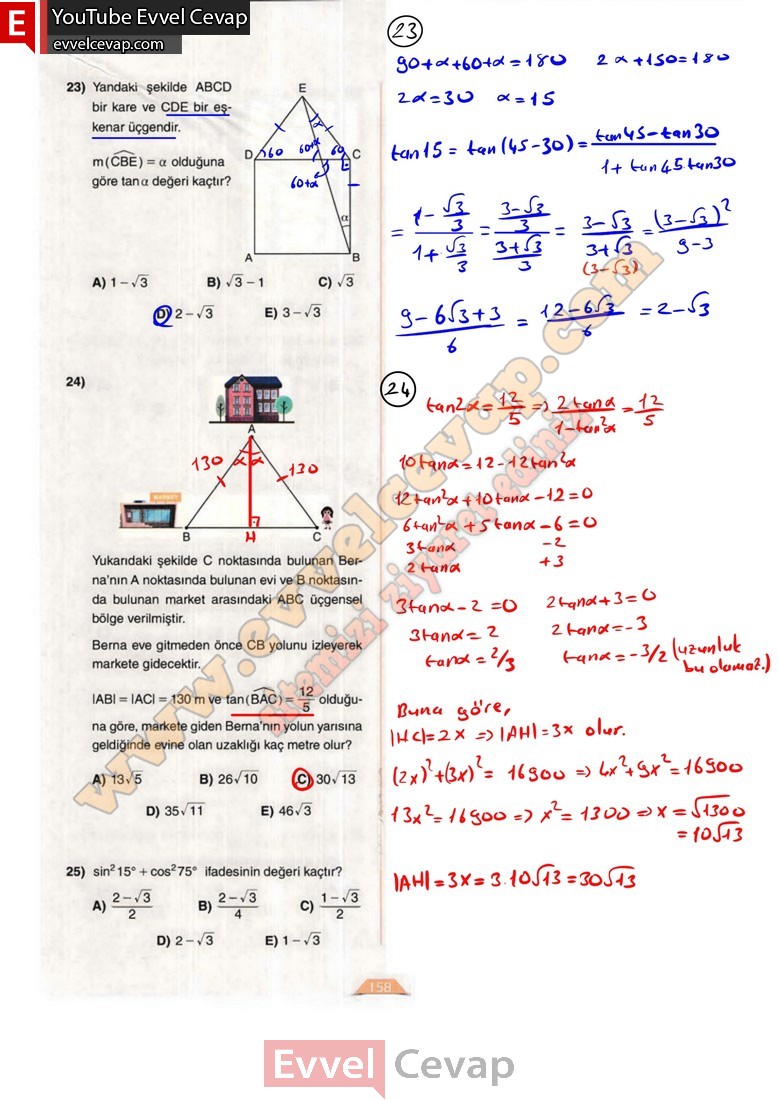 E YouTube Evvel Cevap
evvelcevap.com
23) Yandaki şekilde ABCD
bir kare ve CDE bir eş-
kenar üçgendir.
m(CBE) = α olduğuna
göre tan α değeri kaçtır?
E
α
D 60 60+α 60 C
60+α
α
A B
A) 1 − √3 B) √3 − 1 C) √3
D) 2 − √3 E) 3 − √3
24)
A
130 α α 130
MARKET
B H C
Yukarıdaki şekilde C noktasında bulunan Ber-
na'nın A noktasında bulunan evi ve B noktasın-
da bulunan market arasındaki ABC üçgensel
bölge verilmiştir.
Berna eve gitmeden önce CB yolunu izleyerek
markete gidecektir.
|AB| = |AC| = 130 m ve tan(BAC) = 12/5 olduğu-
na göre, markete giden Berna'nın yolun yarısına
geldiğinde evine olan uzaklığı kaç metre olur?
A) 13√5 B) 26√10 C) 30√13
D) 35√11 E) 46√3
25) sin²15° + cos²75° ifadesinin değeri kaçtır?
A) (2 − √3)/2 B) (2 − √3)/4 C) (1 − √3)/2
D) 2 − √3 E) 1 − √3
158
23
90+α+60+α=180 2α+150=180
2α=30 α=15
tan15 = tan(45-30) = (tan45-tan30)/(1+tan45.tan30)
= (1-√3/3)/(1+√3/3) = ((3-√3)/3)/((3+√3)/3) = (3-√3)/(3+√3) = (3-√3)²/(9-3)
(3-√3)
(9-6√3+3)/6 = (12-6√3)/6 = 2-√3
24
tan2α = 12/5 ⇒ 2tanα/(1-tan²α) = 12/5
10tanα = 12-12tan²α
12tan²α+10tanα-12=0
6tan²α+5tanα-6=0
3tanα -2
2tanα +3
3tanα-2=0 2tanα+3=0
3tanα=2 2tanα=-3
tanα=2/3 tanα=-3/2 (uzunluk
bu olamaz.)
Buna göre,
|HC|=2x ⇒ |AH|=3x olur.
(2x)²+(3x)² = 16900 ⇒ 4x²+9x²=16900
13x²=16900 ⇒ x²=1300 ⇒ x=√1300
=10√13
|AH|=3x=3.10√13=30√13
www.evvelcevap.com
sitemizi ziyaret ediniz
Evvel Cevap